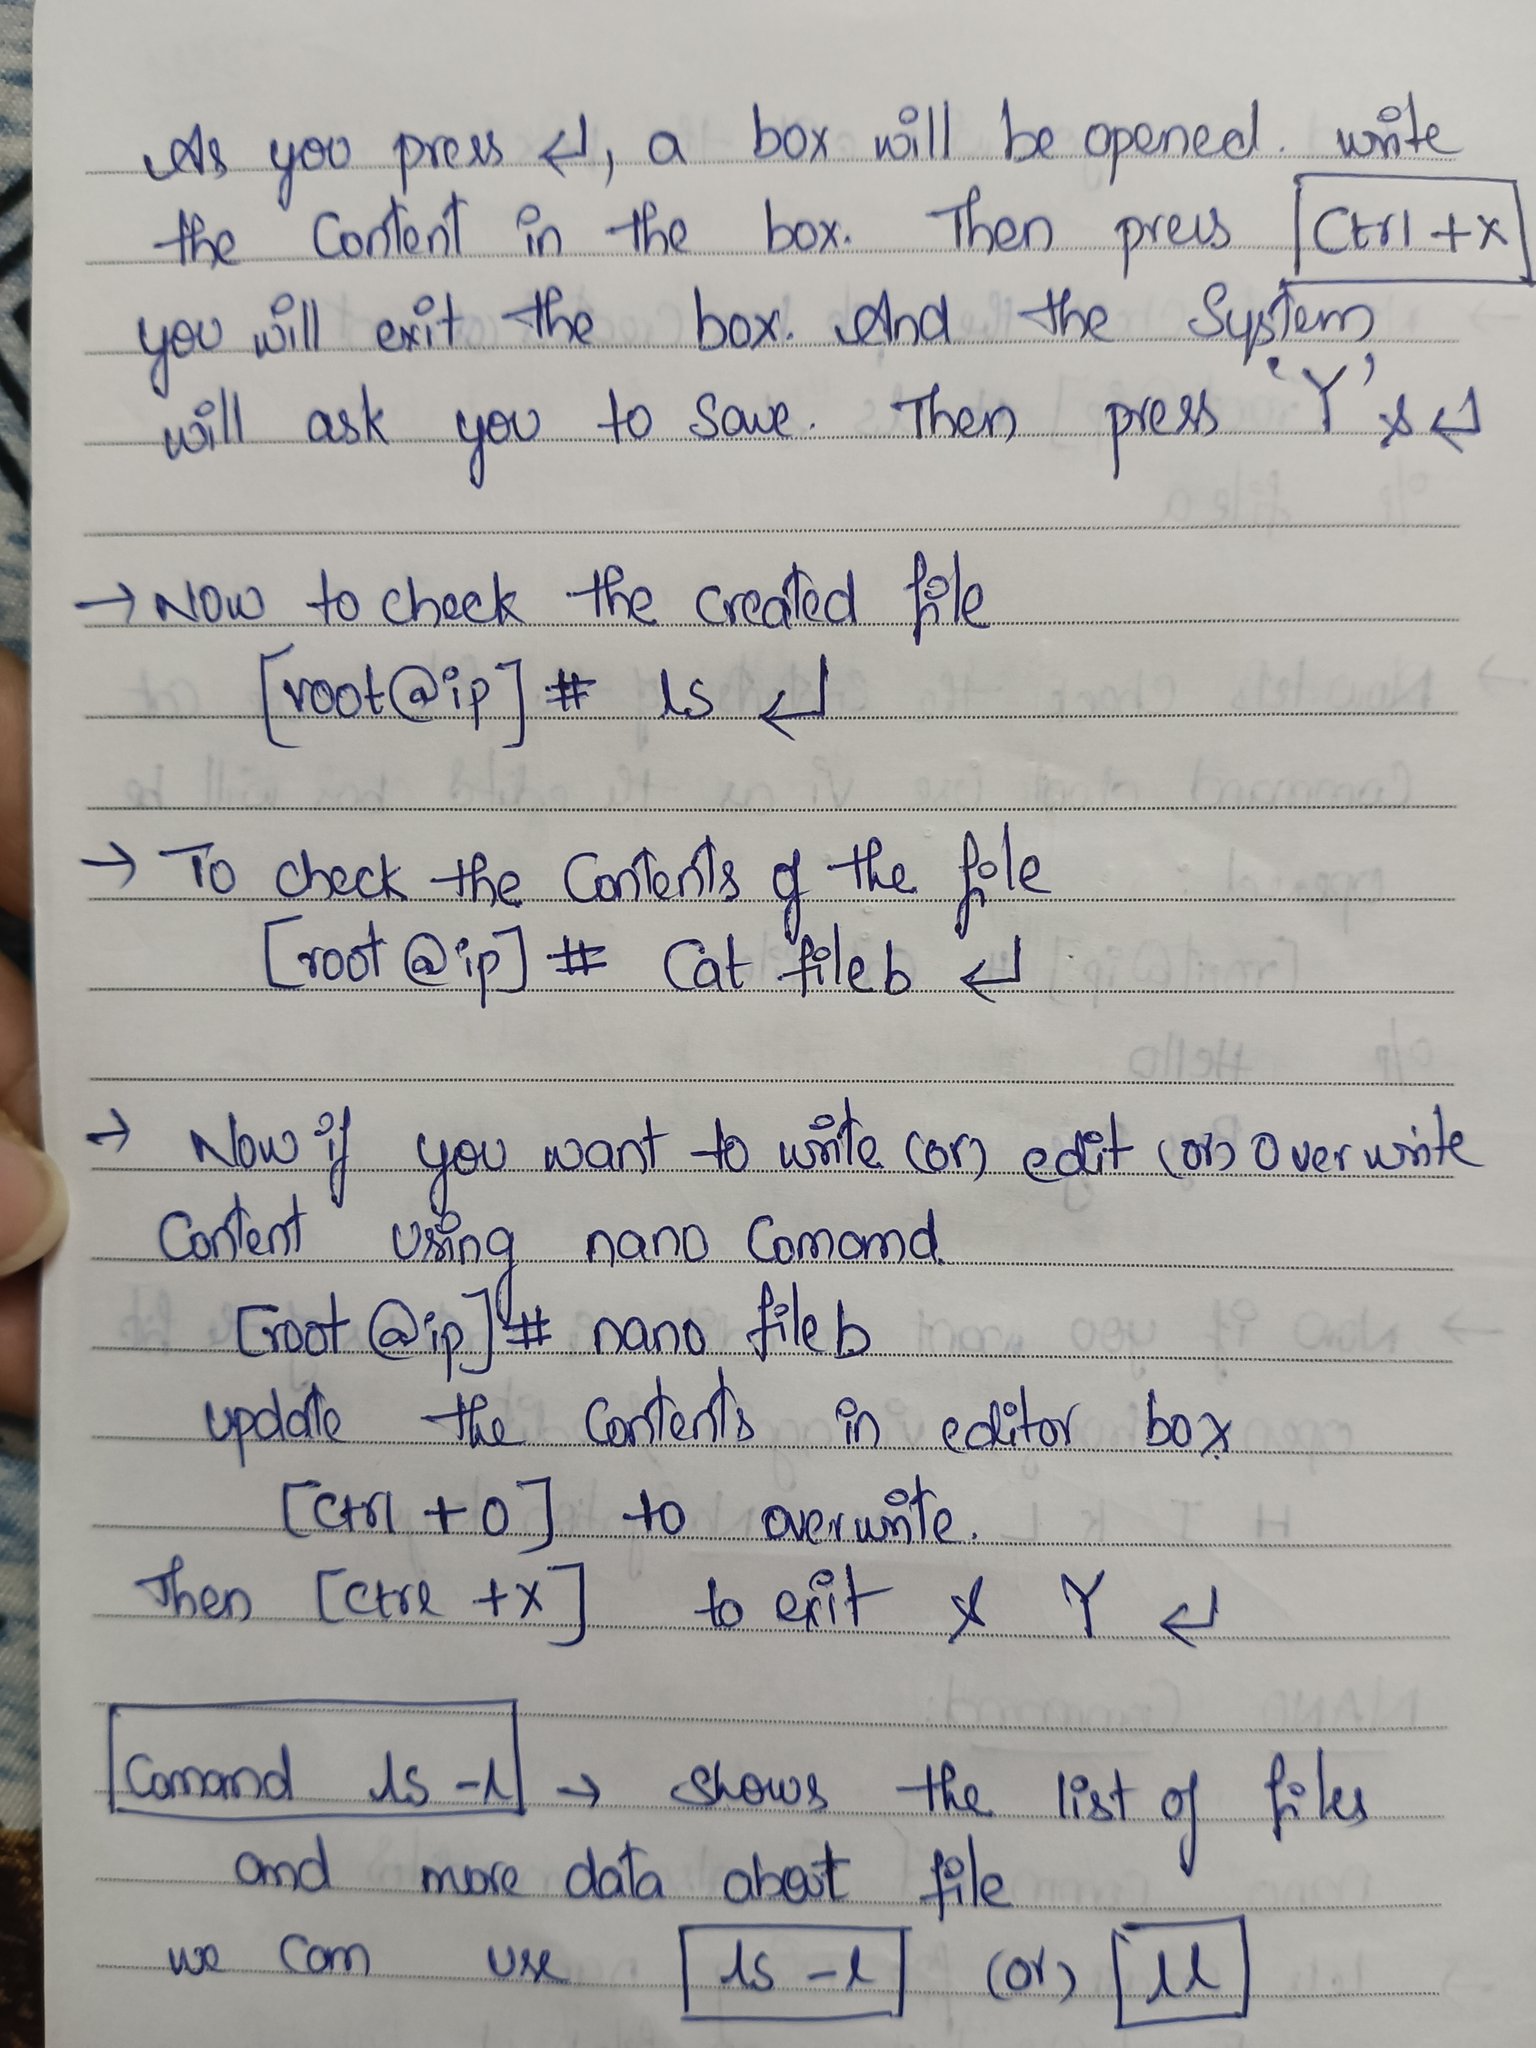 As you press ↵, a box will be opened. write
the Content in the box. Then press Ctrl + x
you will exit the box. And the System
will ask you to Save. Then press 'Y' & ↵
→ Now to check the created file
[root@ip] # ls ↵
→ To check the Contents of the file
[root@ip] # Cat fileb ↵
→ Now if you want to write (or) edit (or) Overwrite
Content using nano Comamd.
[root@ip] # nano fileb
update the Contents in editor box
[Ctrl + O] to overwrite.
Then [Ctrl + X] to exit & Y ↵
Comand ls -l → shows the list of files
and more data about file
we can use ls -l (or) ll